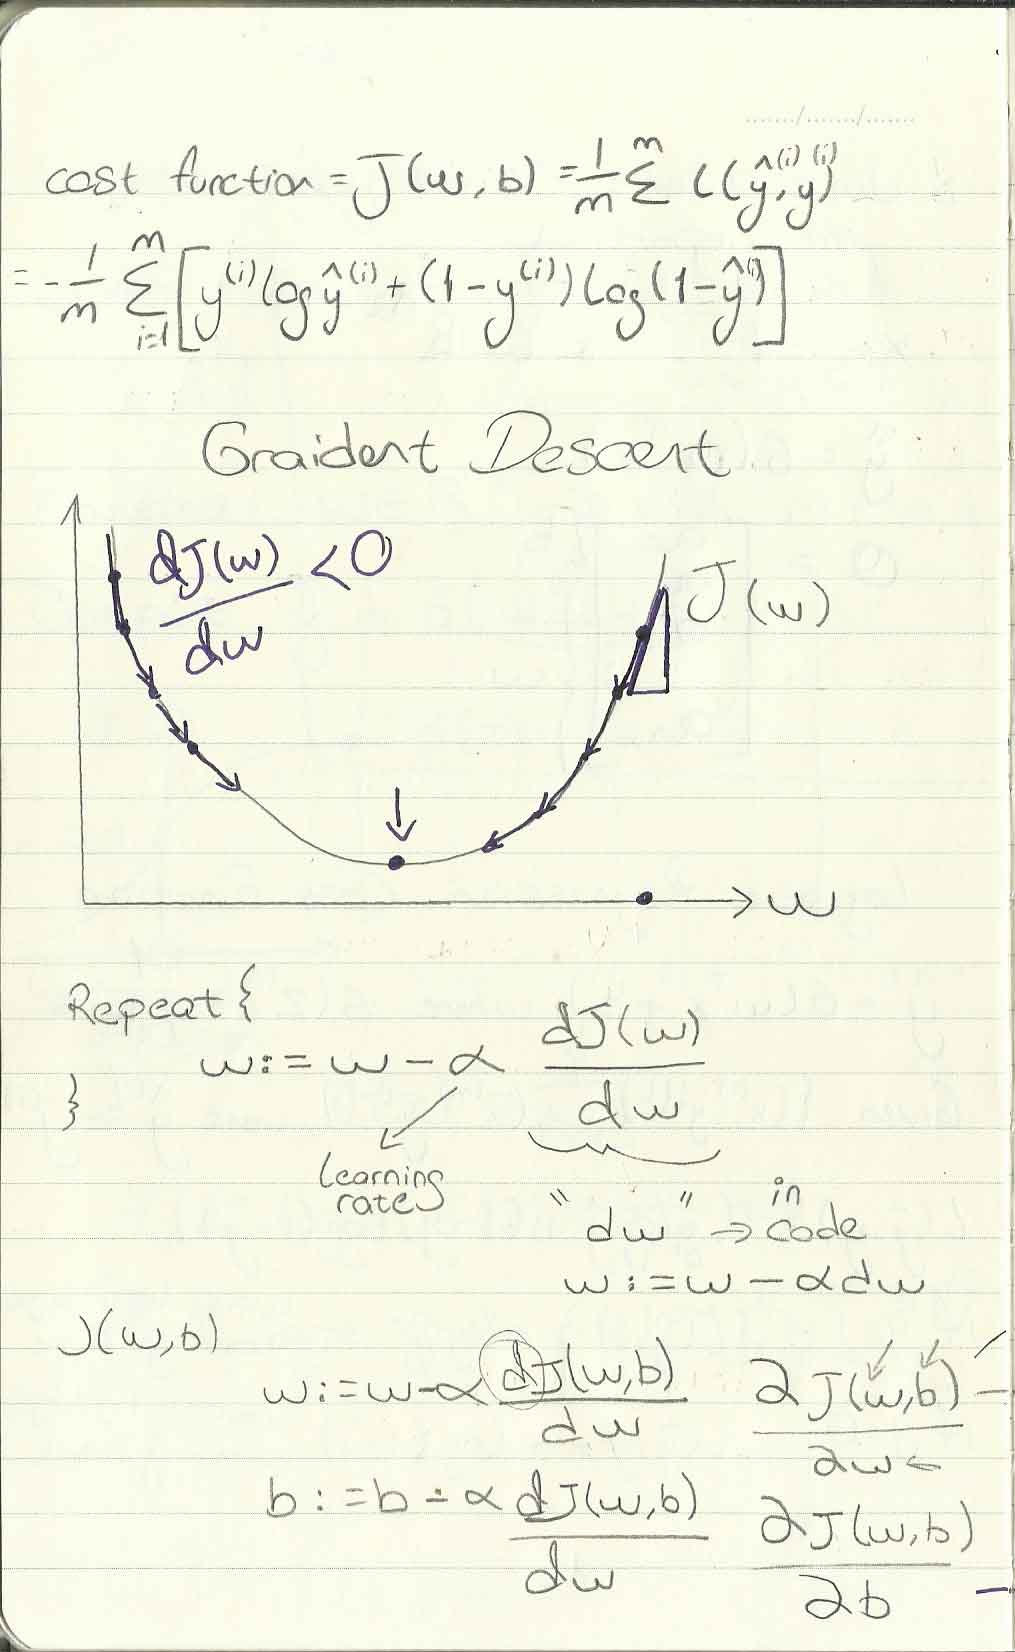 cost function = J(w, b) = 1/m Σ^m L(ŷ^(i), y^(i))
= - 1/m Σ_{i=1}^m [y^(i) log ŷ^(i) + (1 - y^(i)) log(1 - ŷ^(i))]
Graident Descent
dJ(w)/dw < 0
J(w)
w
Repeat {
w := w - α dJ(w)/dw
}
learning
rate
"dw" → in code
w := w - α dw
J(w,b)
w := w - α dJ(w,b)/dw
∂J(w,b)/∂w
b := b - α dJ(w,b)/dw
∂J(w,b)/∂b